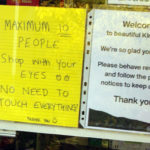 MAXIMUM 10
PEOPLE
Shop with your
EYES
NO NEED TO
TOUCH EVERYTHING
THANK YOU
Welcom
to beautiful Ki
We're so glad yo
Please behave re
and follow the
notices to keep
Thank you